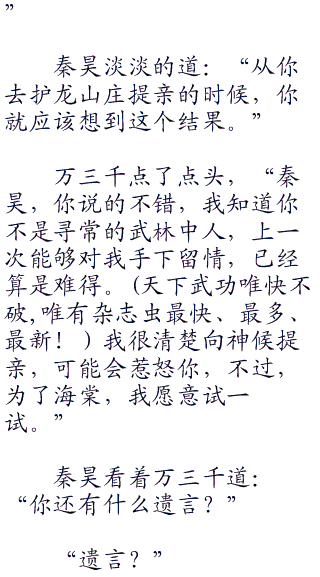 ”
秦昊淡淡的道：“从你
去护龙山庄提亲的时候，你
就应该想到这个结果。”
万三千点了点头，“秦
昊，你说的不错，我知道你
不是寻常的武林中人，上一
次能够对我手下留情，已经
算是难得。(天下武功唯快不
破,唯有杂志虫最快、最多、
最新！)我很清楚向神候提
亲，可能会惹怒你，不过，
为了海棠，我愿意试一
试。”
秦昊看着万三千道：
“你还有什么遗言？”
“遗言？”